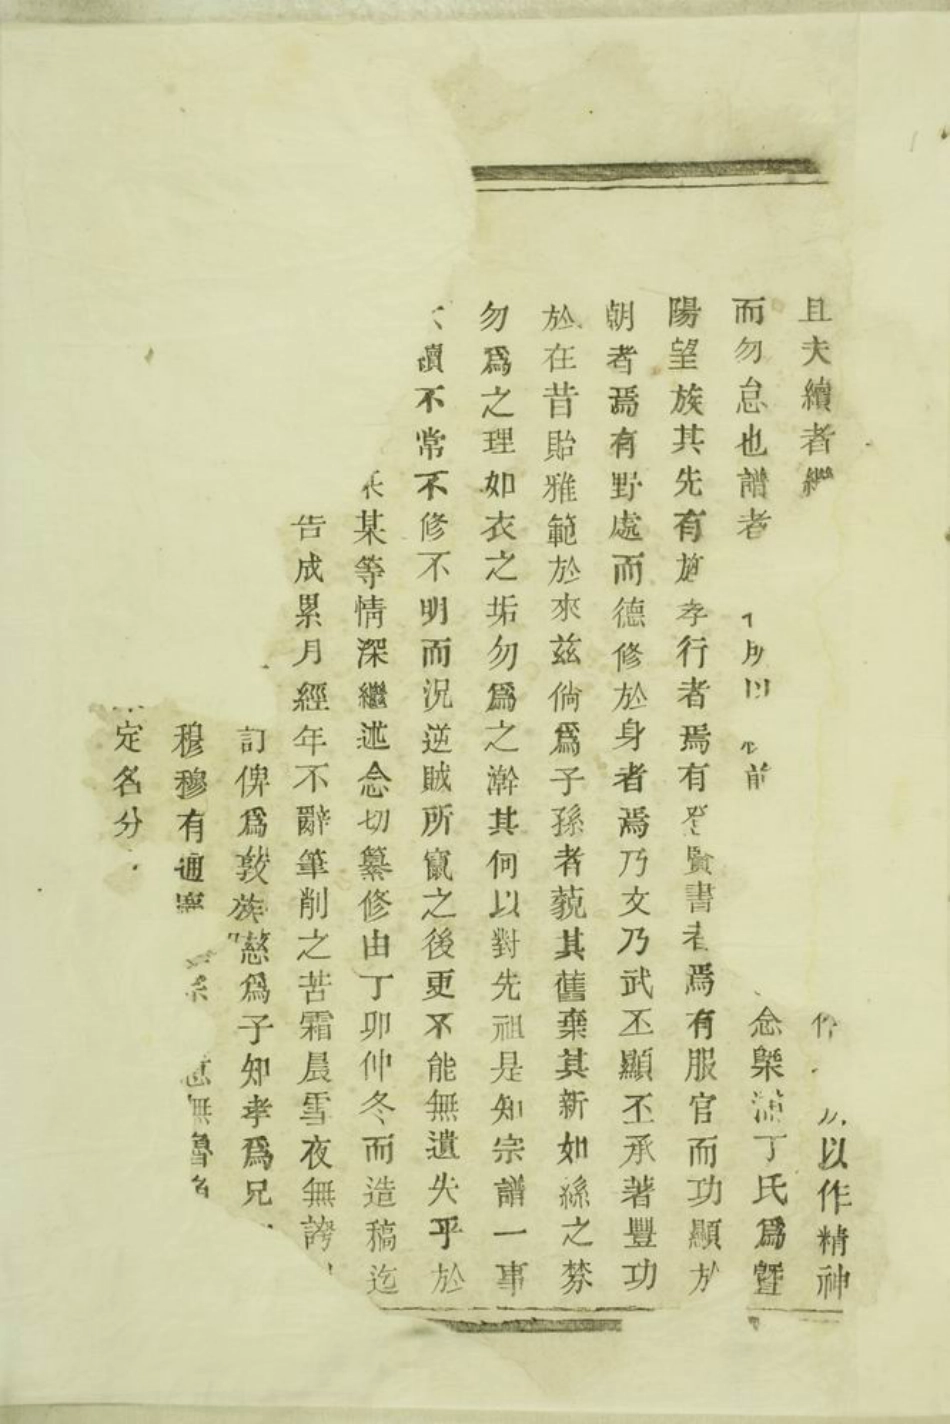 且夫續者繼以作精神
而勿怠也譜者所以前念槼湳丁氏爲暨
陽望族其先有孝行者焉有登賢書者焉有服官而功顯於
朝者焉有野處而德修於身者焉乃文乃武丕顯丕承著豐功
於在昔貽雅範於來兹倘爲子孫者藐其舊棄其新如絲之棼
勿爲之理如衣之垢勿爲之澣其何以對先祖是知宗譜一事
不常不修不明而況逆賊所竄之後更不能無遺失乎於
某等情深繼述念切纂修由丁卯仲冬而造稿迄
告成累月經年不辭筆削之苦霜晨雪夜無誇
訂俾爲敦族慈爲子知孝爲兄
穆穆有通無魯
定名分